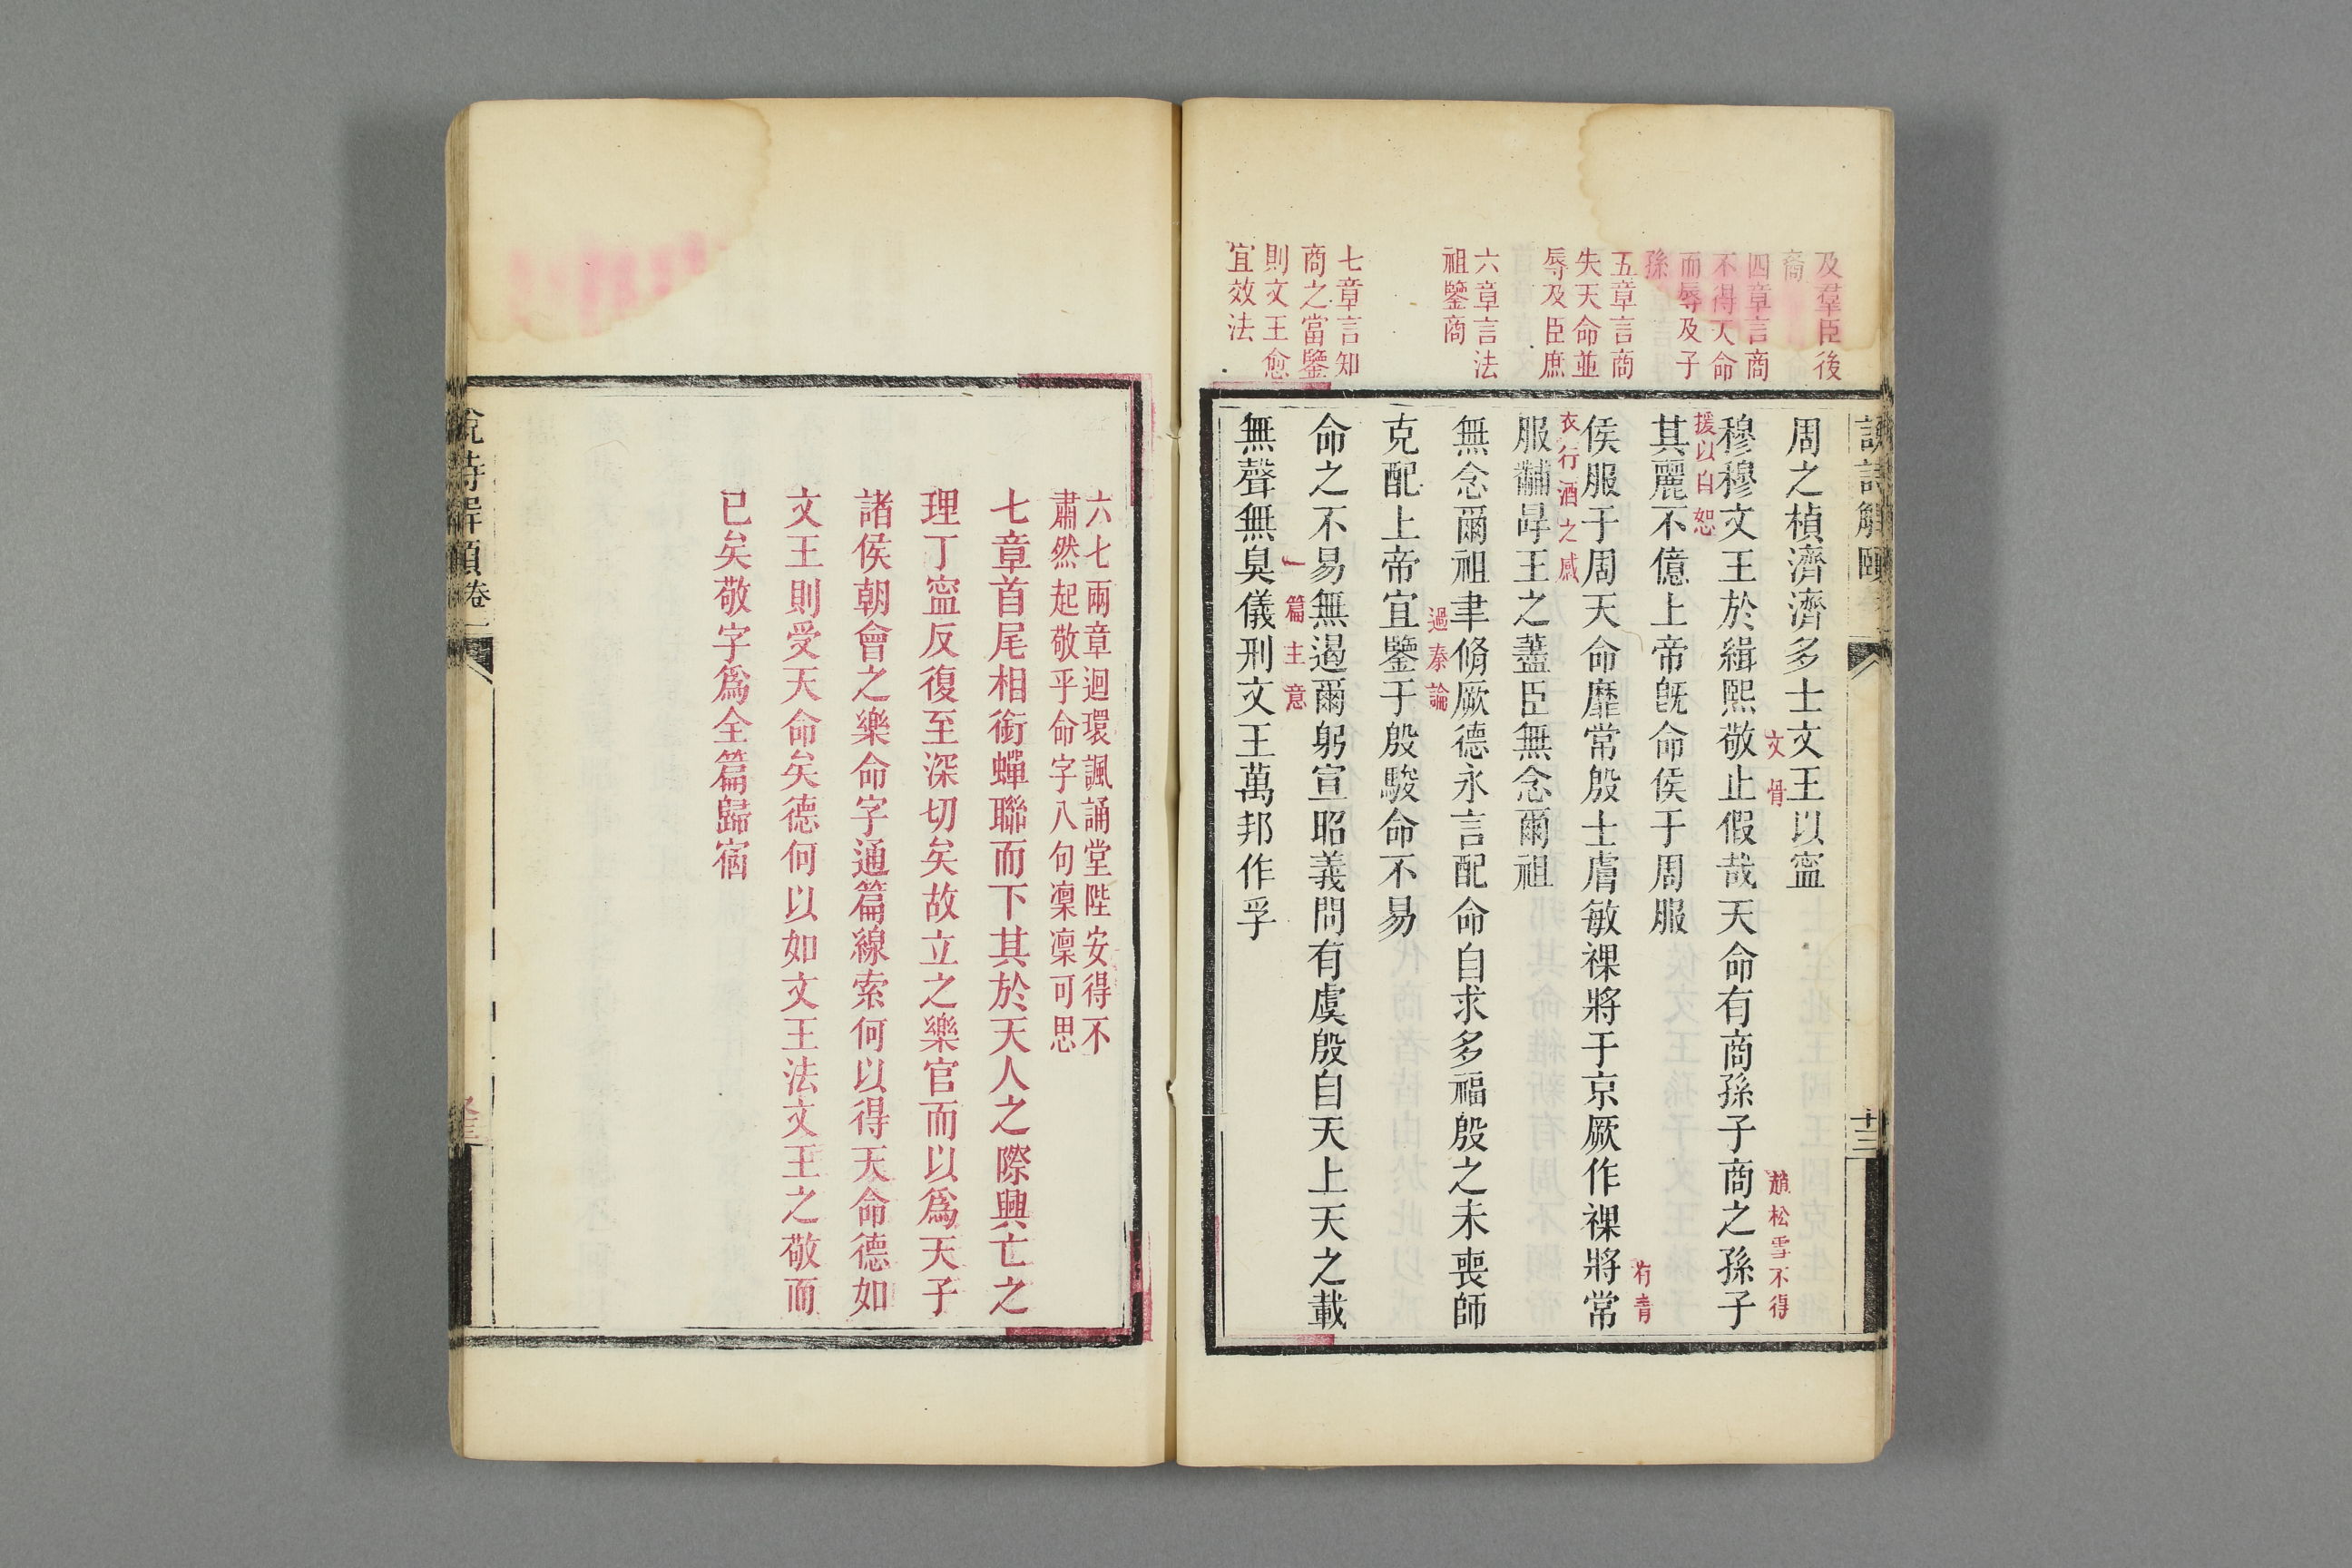 及羣臣後
裔
四章言商
不得天命
而辱及子
孫
五章言商
失天命並
辱及臣庶
六章言法
祖鑒商
七章言知
商之當鑒
則文王愈
宜效法
說詩解頤
廿三
周之楨濟濟多士文王以寍
文骨
趙松雪不得
穆穆文王於緝熙敬止假哉天命有商孫子商之孫子
援以自恕
其麗不億上帝旣命侯于周服
有青
侯服于周天命靡常殷士膚敏祼將于京厥作祼將常
衣行酒之感
服黼冔王之藎臣無念爾祖
無念爾祖聿脩厥德永言配命自求多福殷之未喪師
過秦論
克配上帝宜鑒于殷駿命不易
命之不易無遏爾躬宣昭義問有虞殷自天上天之載
一篇主意
無聲無臭儀刑文王萬邦作孚
六七兩章迴環諷誦堂陛安得不
肅然起敬乎命字八句凜凜可思
七章首尾相銜蟬聯而下其於天人之際興亡之
理丁寍反復至深切矣故立之樂官而以爲天子
諸侯朝會之樂命字通篇線索何以得天命德如
文王則受天命矣德何以如文王法文王之敬而
已矣敬字爲全篇歸宿
說詩解頤卷一